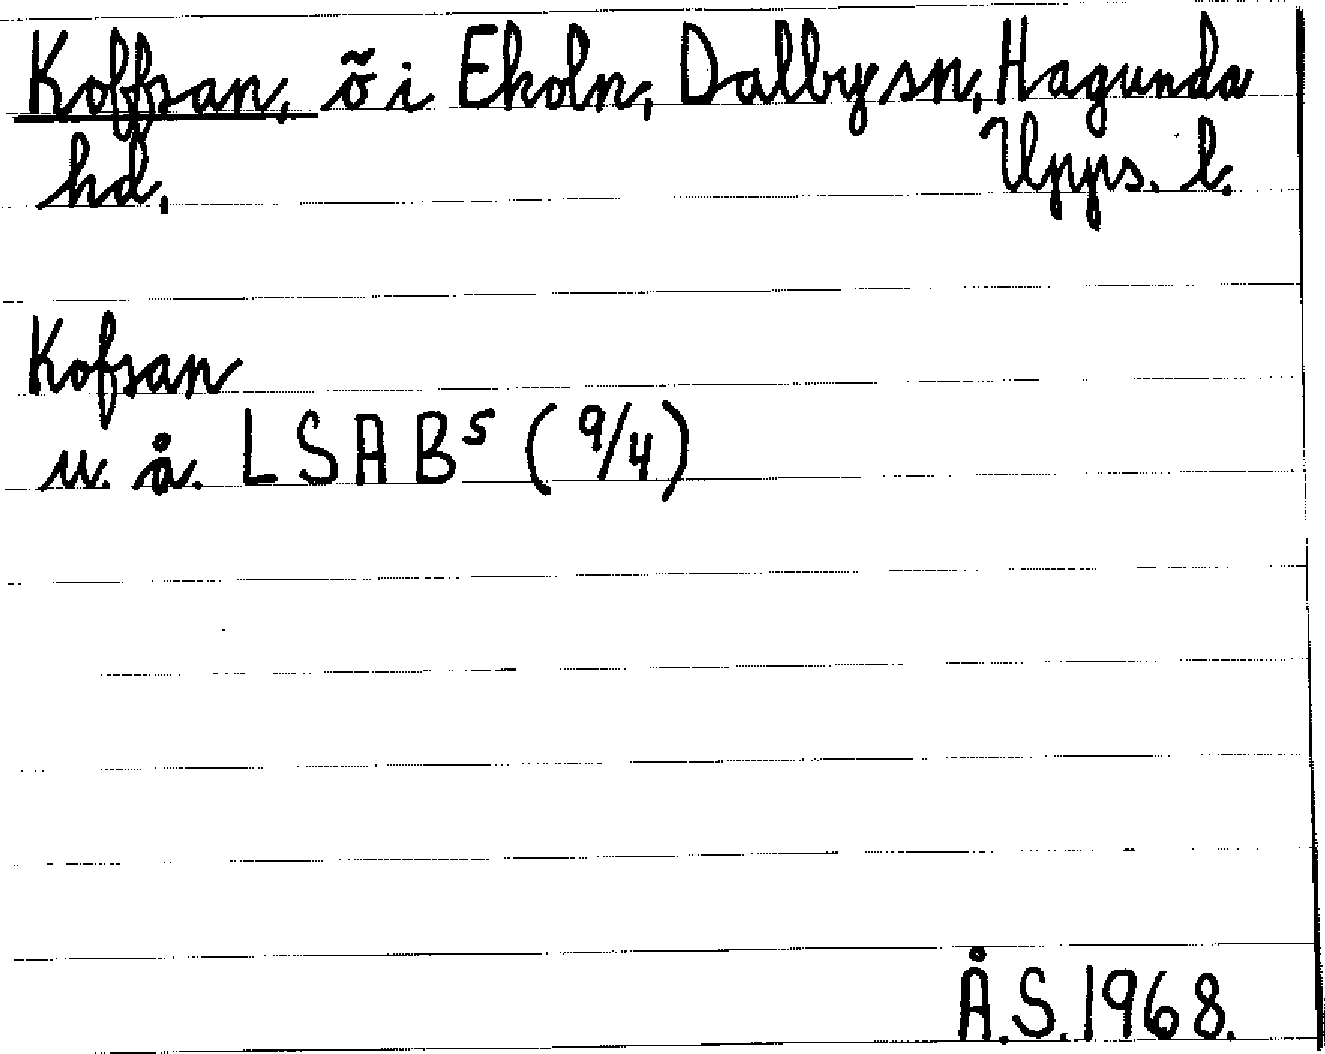 Koffsan, ö i Ekoln, Dalby sn, Hagunda
hd. Upps. l.
Kofsan
u. å. LSA B⁵ (9/4)
Å.S. 1968.